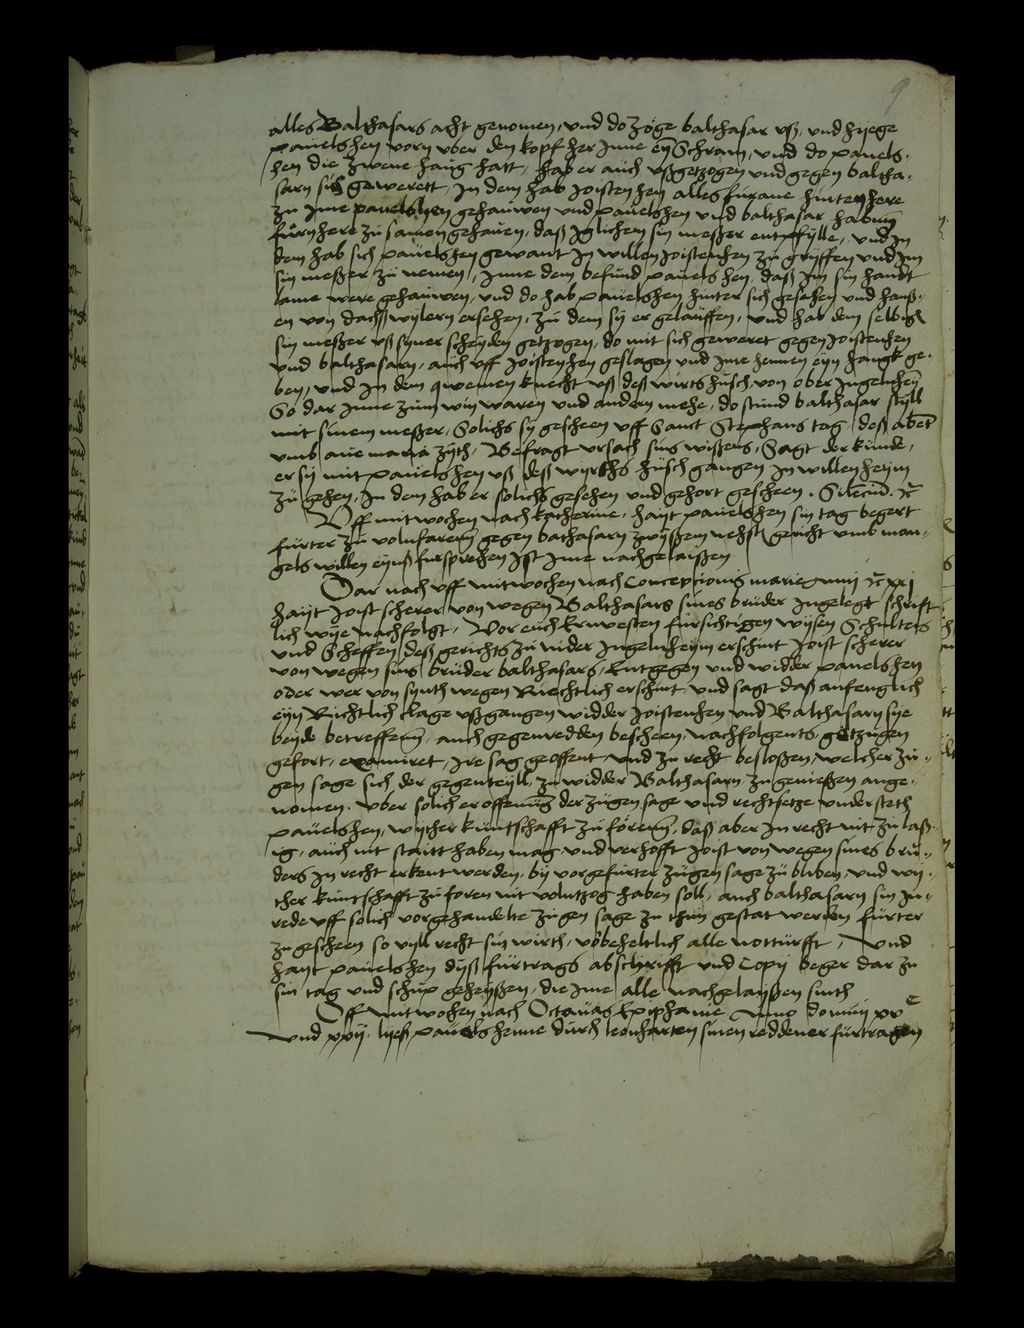 9
alles Balthasars acht genomen, und do zoge balthasar uß, und hyege
pauelshen vorn uber den kopf her Inne eyn Schram, und do pauels-
hen die zwene haüg hatt, hab er auch ußgetzogen und gegen baltha-
sarn sich gewerett, In dem hab Joistenhen alles furane hinten here
zu Ime pauelshen gehauwen und pauelshen und balthasar habenn
furn here zu samen gehauen, daß Iglichem sin meßer entpfylle, und In
dem hab sich pauelshen gewant In willen Joistenhen zu gryffen und Im
sin meßer zu nemen, Inne dem befund pauelshen, daß Im sin handt
lame were gehauwen, und do hab pauelshen hinter sich gesehen und hanß-
en von dachßwylern ersehen, zu dem sy er gelauffen, und hab dem selbigen
sin meßer uß syner scheyden getzogen, do mit sich geweret gegen Joistenhen
und balthasarn, auch uff Joistenhen geslagen und Ime hennen eyn haugk ge-
ben, und In dem qwemen knecht uß deß wirts husch von ober Ingelnheym
So dar Inne zum wyn waren und andern mehe, do stund balthasar styll
mit sinem meßer, Solichs sy gescheen uff Sanct Stephans tag deß abent
umb ave maria zyth, Befragt ursach sins wißens, Sagt der kunde,
er sy mit pauelshen uß deß wyrths husch gangen In willen heym
zu gehen, In dem hab er solichs gesehen und gehort gescheen. Silencium etc
Uff mitwochen nach katherine, hayt pauelshen sin tag begert
furter zu volnfarenn gegen bathasarn zwyßem nehst gericht umb man-
gels willen eynß fursprechen Ist Ime nachgelaißen
Dar nach uff mitwochen nach Concepcionis marie anno etc xxi
hayt Joist scherer von wegen Balthasars sines bruder Ingelegt schrift-
lich wye nachfolgt, Vor euch Ernvesten fursichtigen wysen Schulteis
und Scheffen deß gerichts zu nider Ingelnheym erschint Joist scherer
von wegen sins bruder balthasars, Entgegen und widder pauelshen
oder wer von synth wegen Rechtlich erschint und sagt daß anfenglich
eyn Richtlich clage ußgangen widder Joistenhen und Balthasarn sye
beyde betreffenn, auch gegenredden bescheen, nachfolgents getzugen
gehort, examiniret, Ire sag geoffent und zu recht besloßen, welcher zu-
gen sage sich der gegenteyll zu widder Balthasarn zu genießen ange-
nomen. Uber solich eroffenung der zugen sage und rechtsetze understeth
pauelshen, wyther kuntschafft zu forenn, daß aber In recht nit zu laß-
ig, auch nit staitt haben mag und verhofft Joist von wegen sines bru-
ders In recht erkent werden, by vorgefurter zugen sage zu bliben und wy-
ther kuntschafft zu foren nit volntzog haben soll, auch balthasarn sin In-
rede uff solich vorgehandelte zugen sage zu thun gestat werden furter
zu gescheen so vyll recht sin wirth, vorbeheltlich alle notturfft, Und
hayt pauelshen dyß furtrags abschrifft und Copy beger dar zu
sin tag und schup geheyßen, die Ime alle nachgelayßen sinth
Uff mitwochen nach Octavas Epiphanie Anno domini xv c
und xxij. lyeß pauels henne durch leonharten sinen reddener furtragen